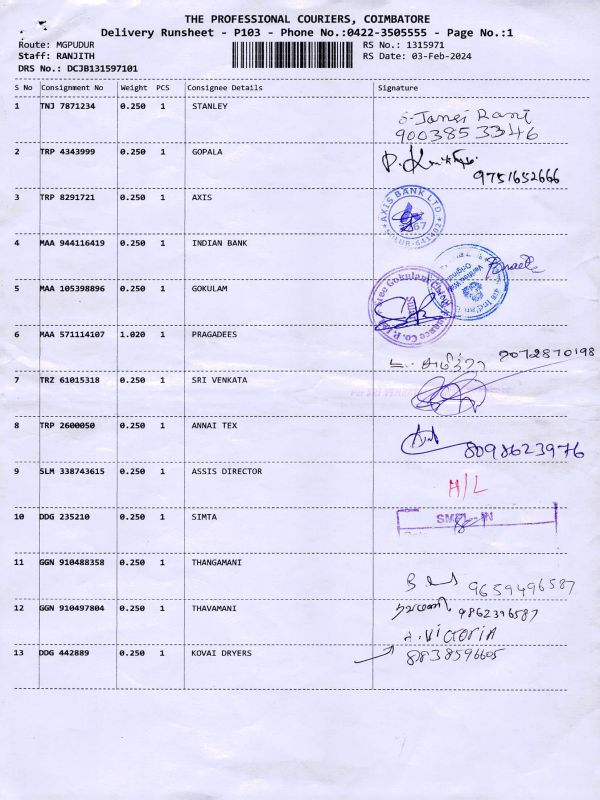 THE PROFESSIONAL COURIERS, COIMBATORE
Delivery Runsheet - P103 - Phone No.:0422-3505555 - Page No.:1
Route: MGPUDUR RS No.: 1315971
Staff: RANJITH RS Date: 03-Feb-2024
DRS No.: DCJB131597101
S No Consignment No Weight PCS Consignee Details Signature
1 TNJ 7871234 0.250 1 STANLEY
9003853346
2 TRP 4343999 0.250 1 GOPALA
9751652666
3 TRP 8291721 0.250 1 AXIS
AXIS BANK LTD
4 MAA 944116419 0.250 1 INDIAN BANK
Verified With Original
5 MAA 105398896 0.250 1 GOKULAM
Sree Gokulam Chit & Finance Co. P. Ltd
6 MAA 571114107 1.020 1 PRAGADEES
7 TRZ 61015318 0.250 1 SRI VENKATA
8 TRP 2600050 0.250 1 ANNAI TEX
8098623976
9 SLM 338743615 0.250 1 ASSIS DIRECTOR
H/L
10 DDG 235210 0.250 1 SIMTA
11 GGN 910488358 0.250 1 THANGAMANI
9659496587
12 GGN 910497804 0.250 1 THAVAMANI
9862396587
A. VICTORIA
13 DDG 442889 0.250 1 KOVAI DRYERS
8838596605